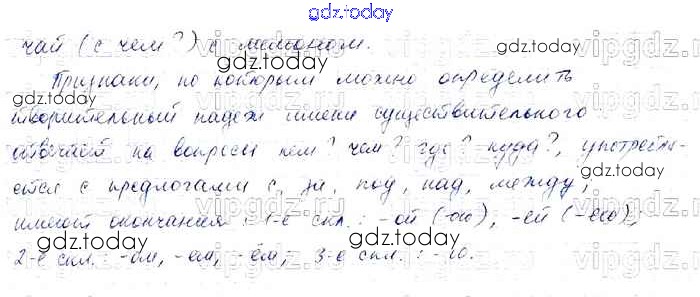 gdz.today
чай (с чем?) с лимоном.
Признаки, по которым можно определить
творительный падеж имени существительного
отвечает на вопросы кем? чем? где? куда?, употребля-
ется с предлогами с, за, под, над, между,
имеют окончания: 1-е скл.: -ой (-ою), -ей (-ею),
2-е скл.: -ом, -ем, -ём, 3-е скл.: -ю.
gdz.today
gdz.today
gdz.today
gdz.today
gdz.today
gdz.today